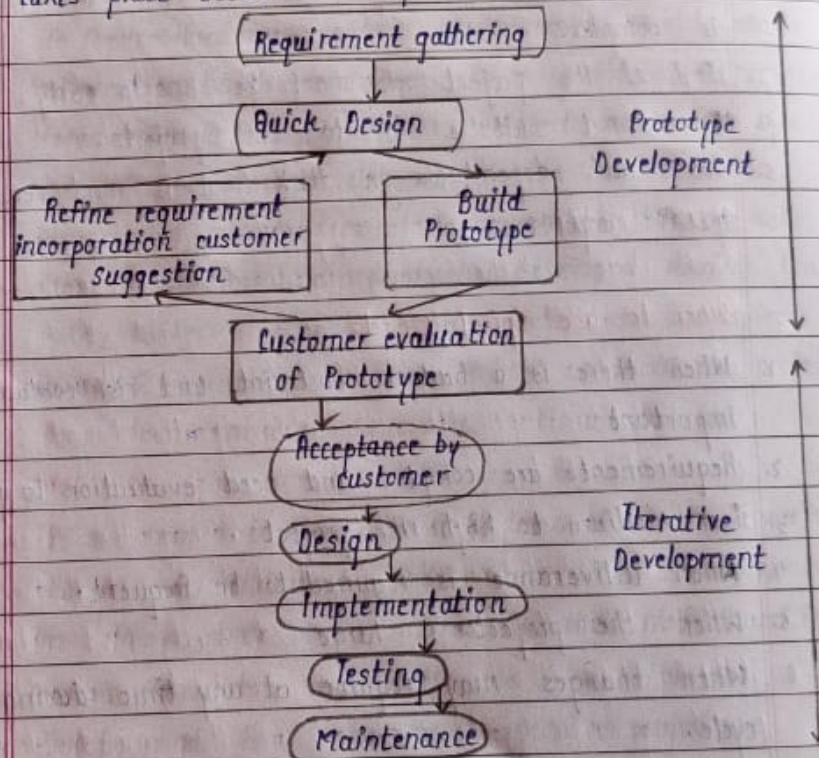 Requirement gathering
Quick Design
Prototype
Development
Refine requirement
incorporation customer
suggestion
Build
Prototype
Customer evaluation
of Prototype
Acceptance by
customer
Design
Iterative
Development
Implementation
Testing
Maintenance